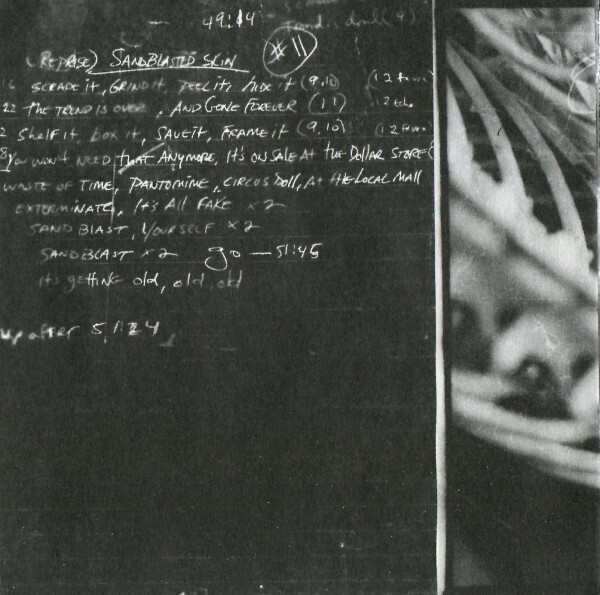 49:14
(Reprise) SANDBLASTED SKIN #11
16 SCRAPE it, GRIND it, PEEL it, hide it (9,10) (12
22 The TREND IS OVER, AND GONE FOREVER (11) 12
2 Shelf it, box it, SAVE it, FRAME it (9,10) (12
8 You won't NEED that ANYMORE, It's ON SALE At the DOLLAR STORE (
WASTE OF TIME, PANTOMINE, CIRCUS DOLL, At the LOCAL MALL
EXTERMINATE, It's All FAKE x2
SAND BLAST, YOURSELF x2
SANDBLAST x2 go — 51:45
it's getting old, old, old
up after 51:24